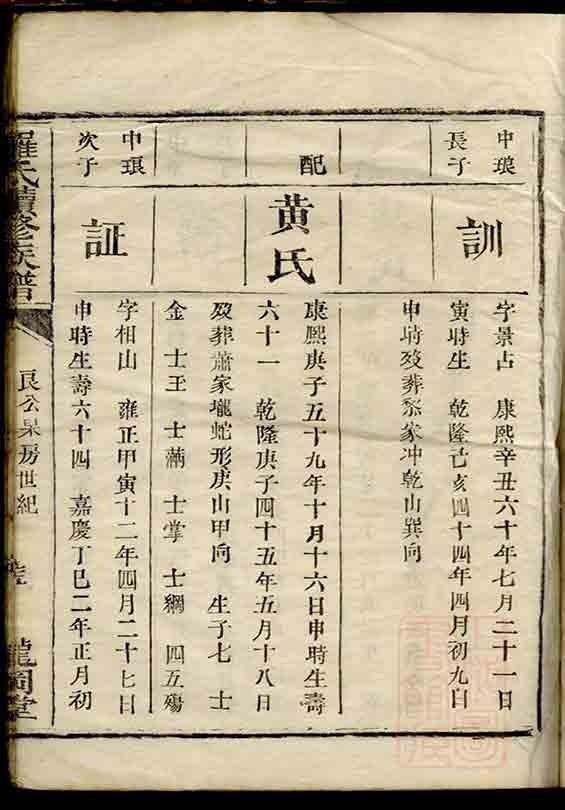 中琅
長子
訓
字景占 康熙辛丑六十年七月二十一日
寅時生 乾隆己亥四十四年四月初九日
申時歿葬黎家冲乾山巽向
配
黃氏
康熙庚子五十九年十月十六日申時生壽
六十一 乾隆庚子四十五年五月十八日
歿葬蕭家壠蛇形庚山甲向 生子七 士
金 士王 士滿 士掌 士綱 四五殤
中琅
次子
証
字相山 雍正甲寅十二年四月二十七日
申時生壽六十四 嘉慶丁巳二年正月初
羅氏續修族譜
良公杲房世紀
龍岡堂